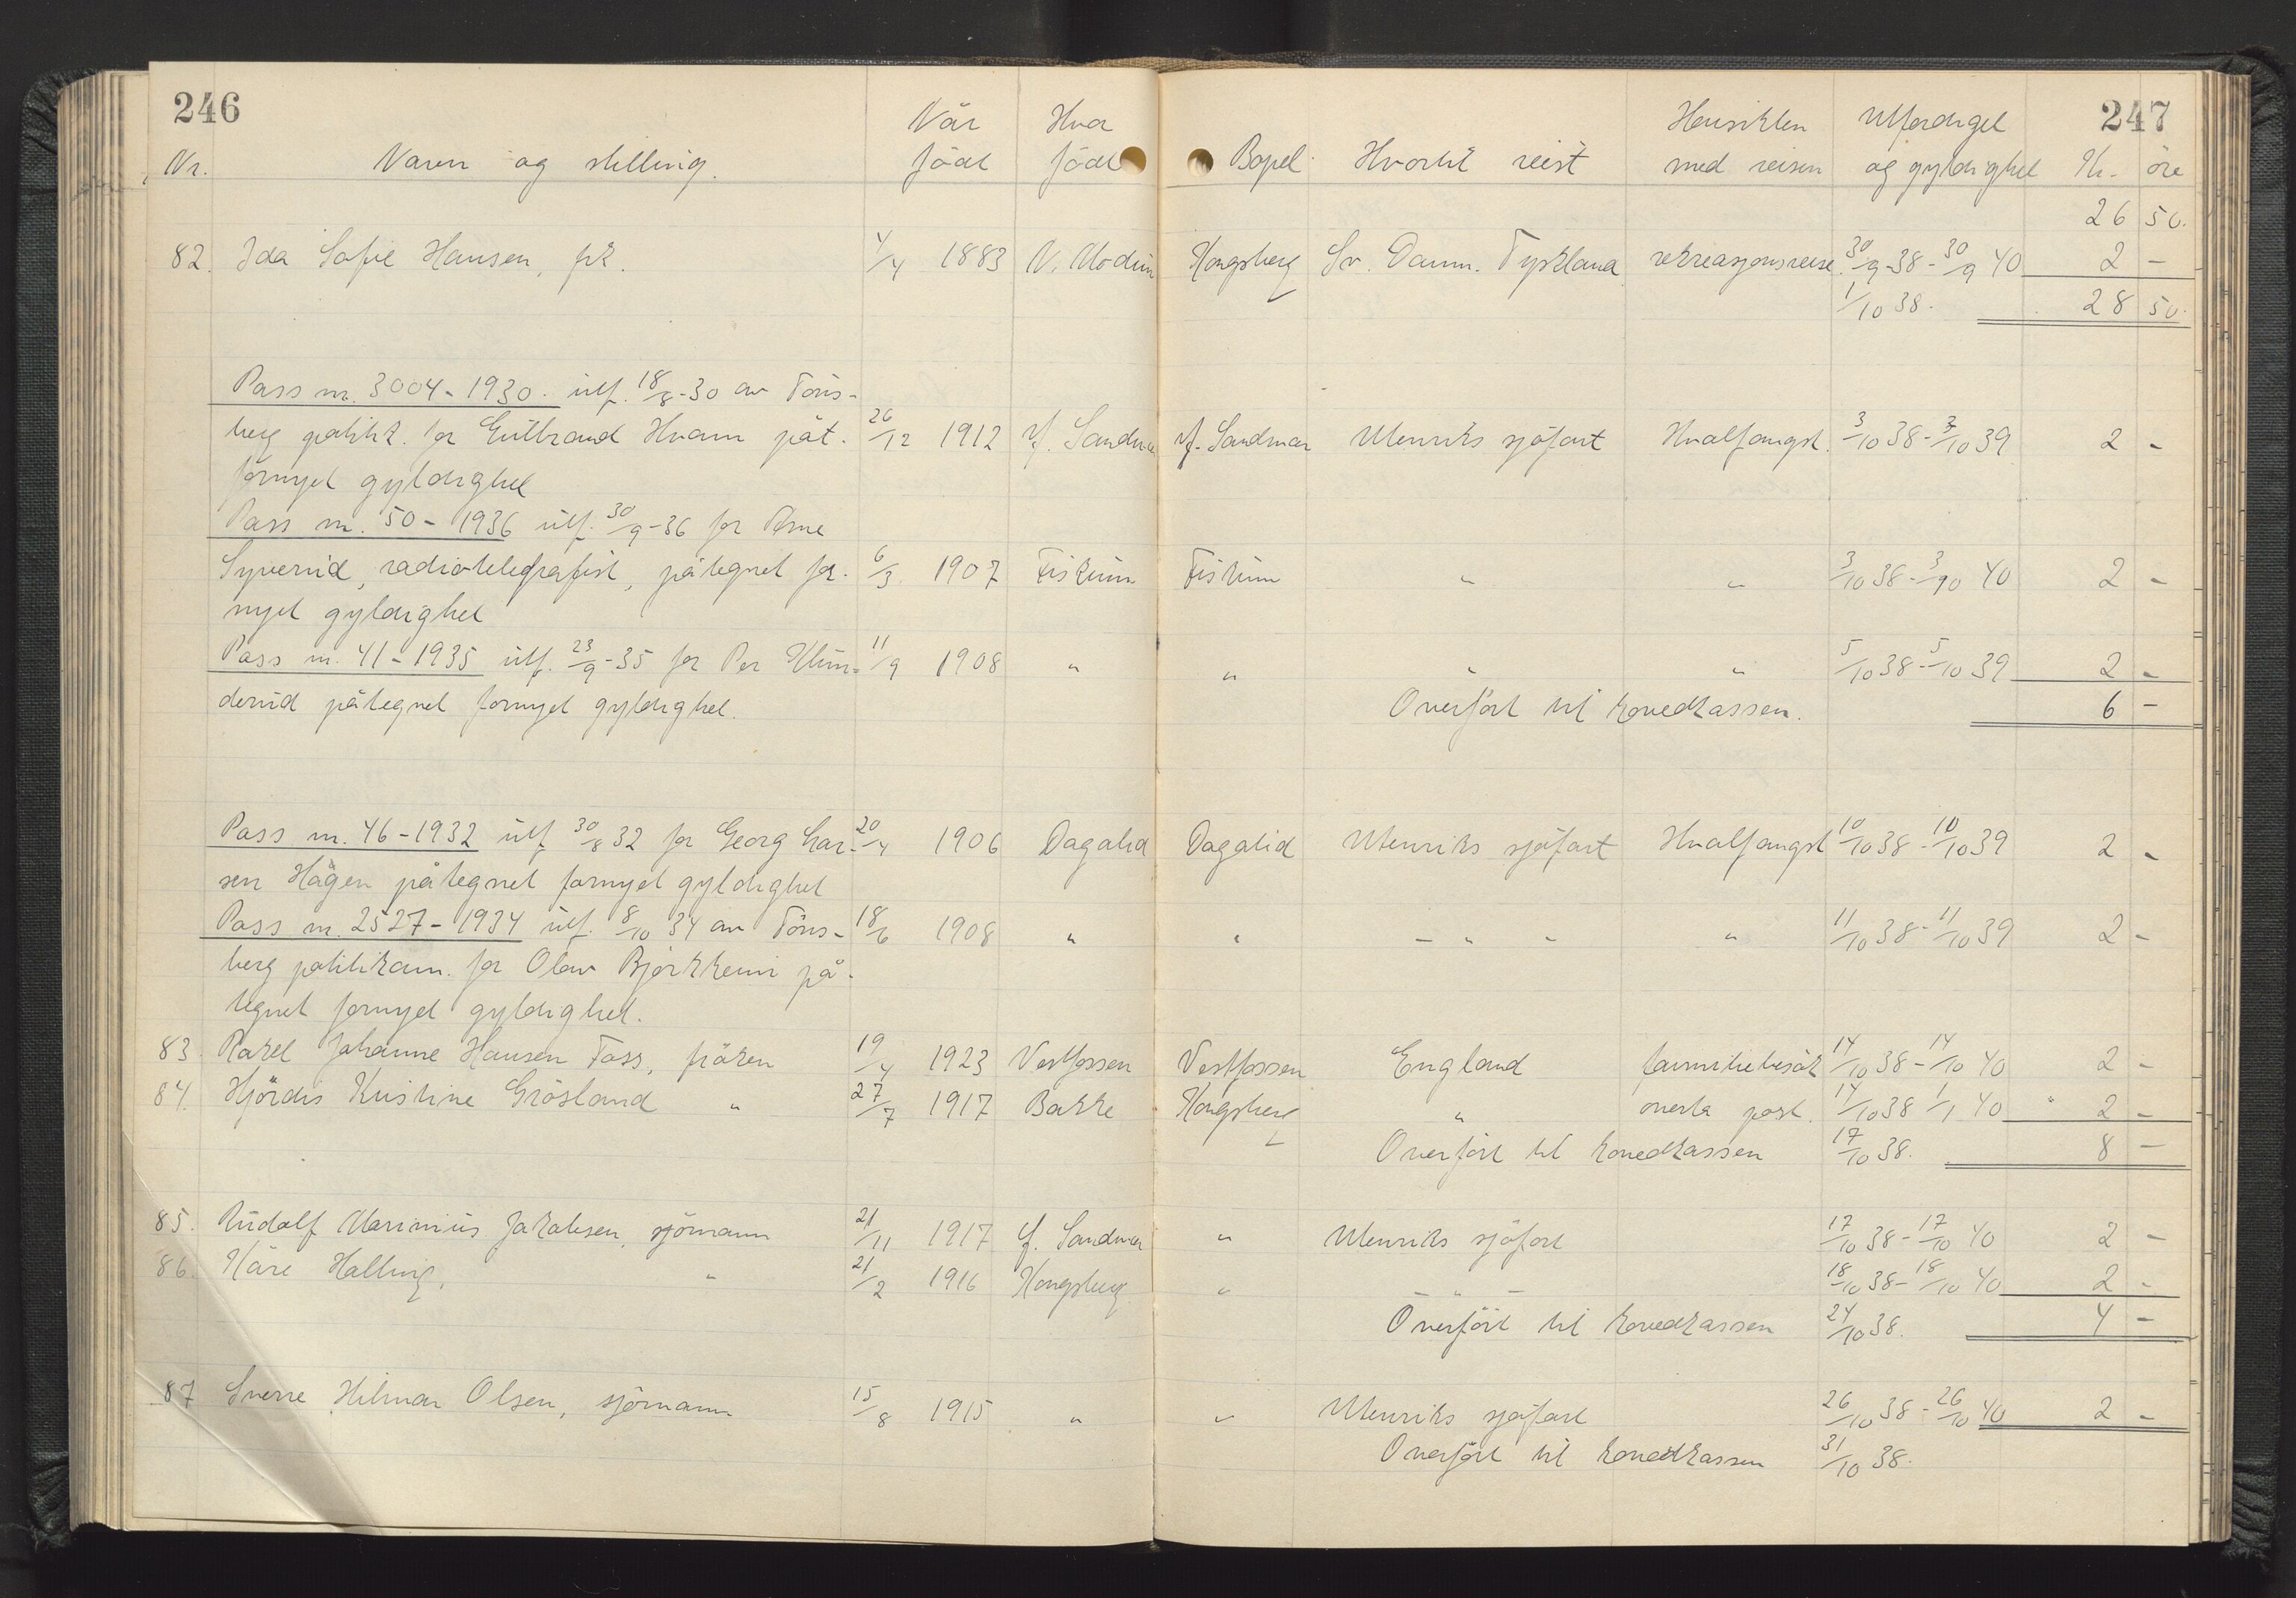 246 247
Når Hvor Hensikten Utferdiget
Nr. Navn og stilling. født født Bopel Hvortil reist med reisen og gyldighet Kr. øre
26 50.
82. Ida Sofie Hansen, frk. 4/4 1883 N. Modum Kongsberg Sv. Danm. Tyskland rekreasjonsreise 30/9-38 - 30/9 40 2 -
1/10 38. 28 50.
Pass nr. 3004 - 1930. utf. 18/8-30 av Töns-
berg politik. for Gulbrand Hvam påt. 26/12 1912 Y. Sandsvær Y. Sandsvær Utenriks sjöfart Hvalfangst. 3/10 38 - 3/10 39 2 -
fornyet gyldighet
Pass nr. 50 - 1936 utf. 30/9-36 for Arne
Syverud, radiotelegrafist, påtegnet for- 6/3 1907 Fiskum Fiskum " " 3/10 38 - 3/10 40 2 -
nyet gyldighet
Pass nr. 41 - 1935 utf. 23/9-35 for Per Klun- 11/9 1908 " " " " 5/10 38 - 5/10 39 2 -
derud påtegnet fornyet gyldighet. Overfört til hovedkassen. 6 -
Pass nr. 46 - 1932 utf 30/8 32 for Georg Lar- 20/4 1906 Dagalid Dagalid Utenriks sjöfart Hvalfangst 10/10 38 - 10/10 39 2 -
sen Hagen påtegnet fornyet gyldighet
Pass nr. 2527 - 1934 utf. 8/10 34 av Töns- 18/6 1908 " " - " - " 11/10 38 - 11/10 39 2 -
berg politikam. for Olav Bjørkheim på-
tegnet fornyet gyldighet.
83. Rakel Johanne Hansen Foss, fröken 19/4 1923 Vestfossen Vestfossen England familiebesök 14/10 38 - 14/10 40 2 -
84. Hjördis Kristine Grösland " 27/7 1917 Bakke Kongsberg " overta post. 14/10 38 1/1 40 " 2 -
Overfört til hovedkassen 17/10 38. 8 -
85. Rudolf Marinius Jakobsen, sjömann 21/11 1917 Y. Sandsvær " Utenriks sjöfart 17/10 38 - 17/10 40 2 -
86. Kåre Halling, " 21/2 1916 Kongsberg " - " - 18/10 38 - 18/10 40 2 -
Overfört til hovedkassen 24/10 38. 4 -
87 Sverre Hilmar Olsen, sjömann 15/8 1915 " " Utenriks sjöfart 26/10 38 - 26/10 40 2 -
Overfört til hovedkassen 31/10 38.